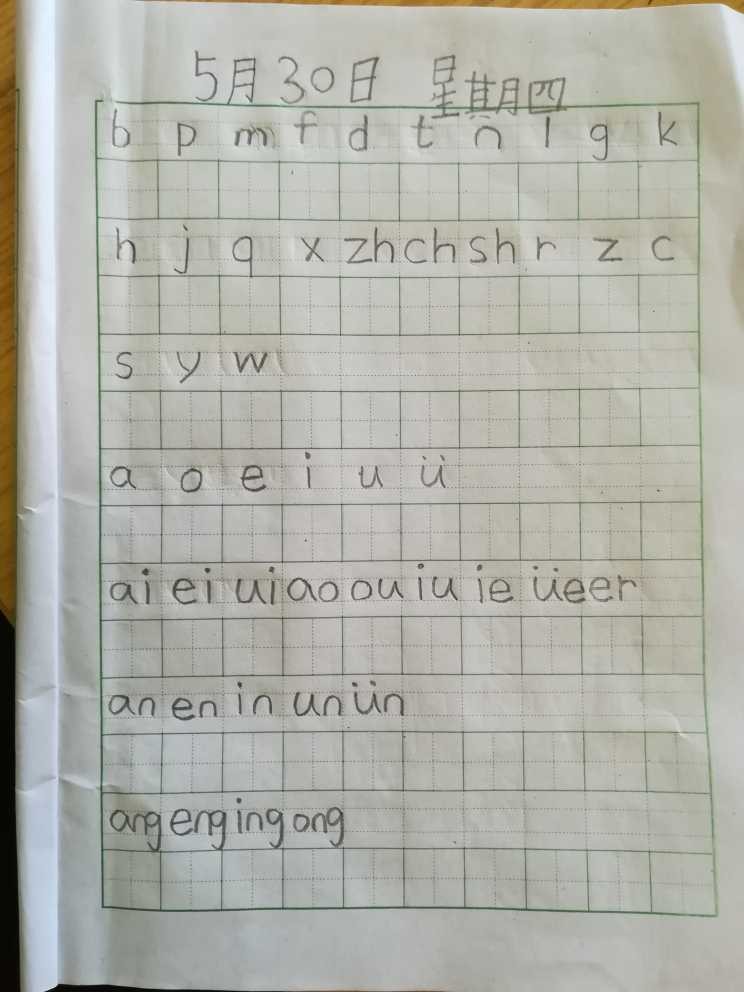 5月30日 星期四
b p m f d t n l g k
h j q x zh ch sh r z c
s y w
a o e i u ü
ai ei ui ao ou iu ie üe er
an en in un ün
ang eng ing ong